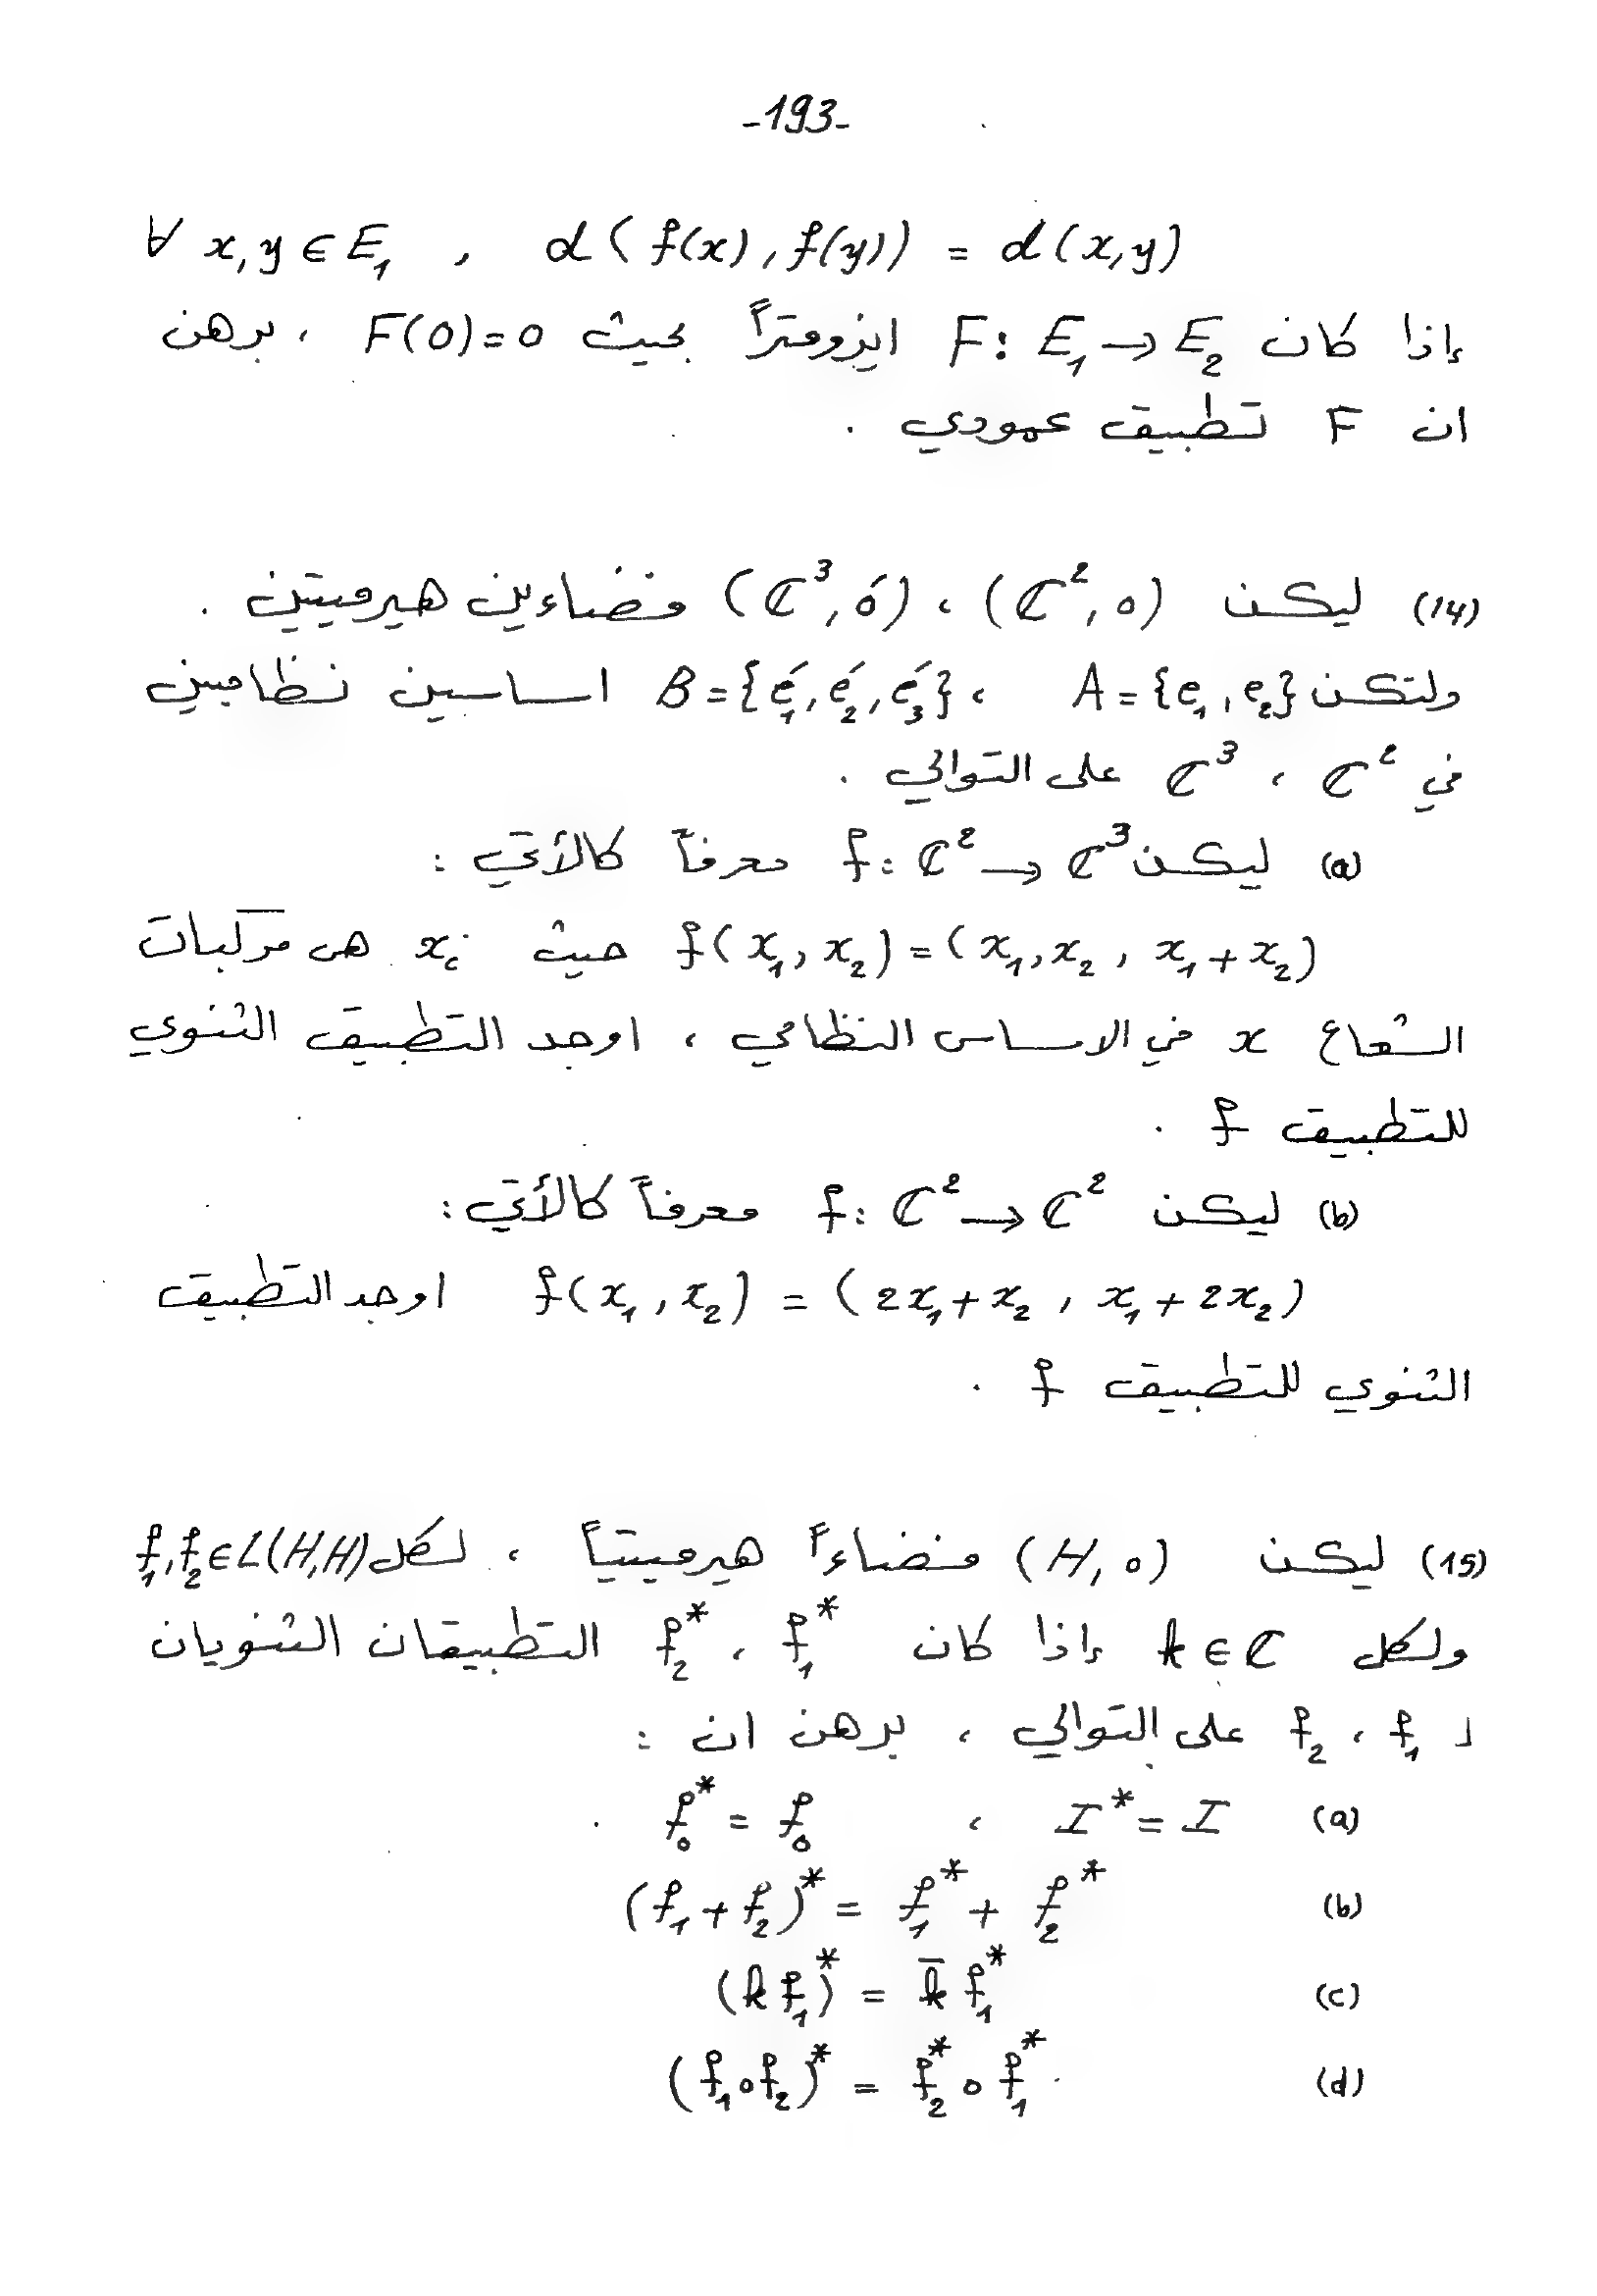 -193-
∀ x,y ∈ E₁ , d(f(x), f(y)) = d(x,y)
إذا كان F: E₁ → E₂ ايزومتراً بحيث F(0)=0 ، برهن
ان F تطبيق عمودي .
(14) ليكن (ℂ², o) ، (ℂ³, ó) فضاءين هيرميتين .
ولتكن A={e₁, e₂} ، B={é₁, é₂, é₃} اساسين نظاميين
في ℂ² ، ℂ³ على التوالي .
(a) ليكن f: ℂ² → ℂ³ معرفاً كالأتي :
f(x₁, x₂) = (x₁, x₂, x₁+x₂) حيث xᵢ هى مركبات
الشعاع x في الاساس النظامي ، اوجد التطبيق الثنوي
للتطبيق f .
(b) ليكن f: ℂ² → ℂ² معرفاً كالأتي :
f(x₁, x₂) = (2x₁+x₂ , x₁+2x₂) اوجد التطبيق
الثنوي للتطبيق f .
(15) ليكن (H, o) فضاءاً هيرميتياً ، لكل f₁, f₂ ∈ L(H,H)
ولكل k ∈ ℂ إذا كان f₁* ، f₂* التطبيقان الثنويان
لـ f₁ ، f₂ على التوالي ، برهن ان :
(a) I* = I ، f₀* = f₀ .
(b) (f₁+f₂)* = f₁* + f₂*
(c) (k f₁)* = k̄ f₁*
(d) (f₁ o f₂)* = f₂* o f₁*